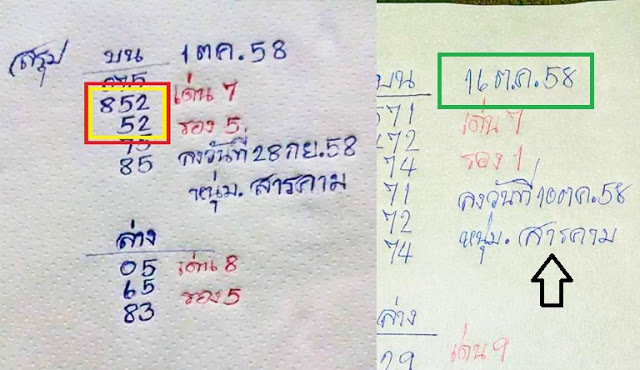 สรุป บน 1 ตค.58
852 เด่น 7
52 รอง 5
75
85 ลงวันที่ 28 กย.58
หนุ่ม. สารคาม
ล่าง
05 เด่น 8
65 รอง 5
83
บน 16 ต.ค.58
571 เด่น 7
472 รอง 1
74
71 ลงวันที่ 10 ตค.58
72 หนุ่ม. สารคาม
74
ล่าง
เด่น 9